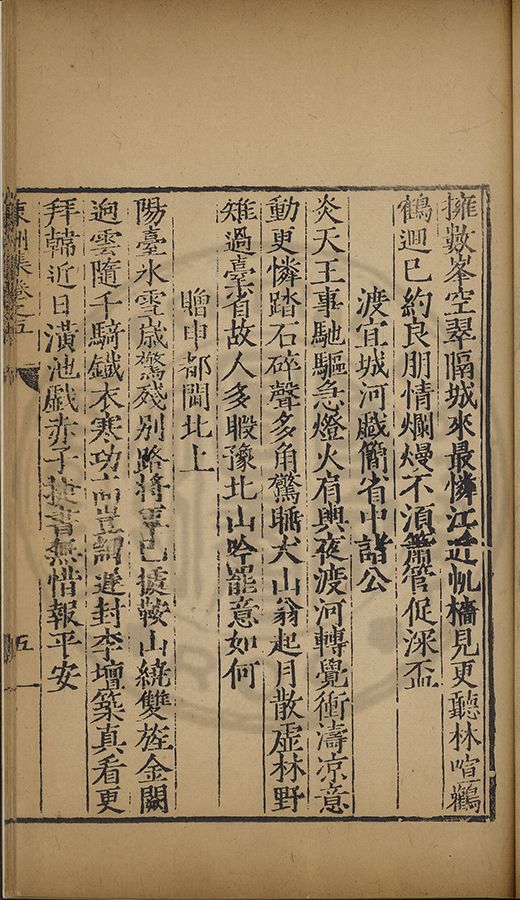 擁數峯空翠隔城來最憐江近帆檣見更聽林喧鸛
鶴迴已約良朋情爛熳不須簫管促深盃
渡宜城河戲簡省中諸公
炎天王事馳驅急燈火有輿夜渡河轉覺衝濤凉意
動更憐踏石碎聲多角驚睡犬山翁起月散虛林野
雉過臺省故人多暇豫北山吟罷意如何
贈申都閫北上
陽臺冰雪歲驚殘別路將軍已據鞍山繞雙旌金闕
逈雲隨千騎鐵衣寒功高豈詔遲封李壇築真看更
拜韓近日潢池戲赤子捷書無惜報平安
東洲集卷之五
五